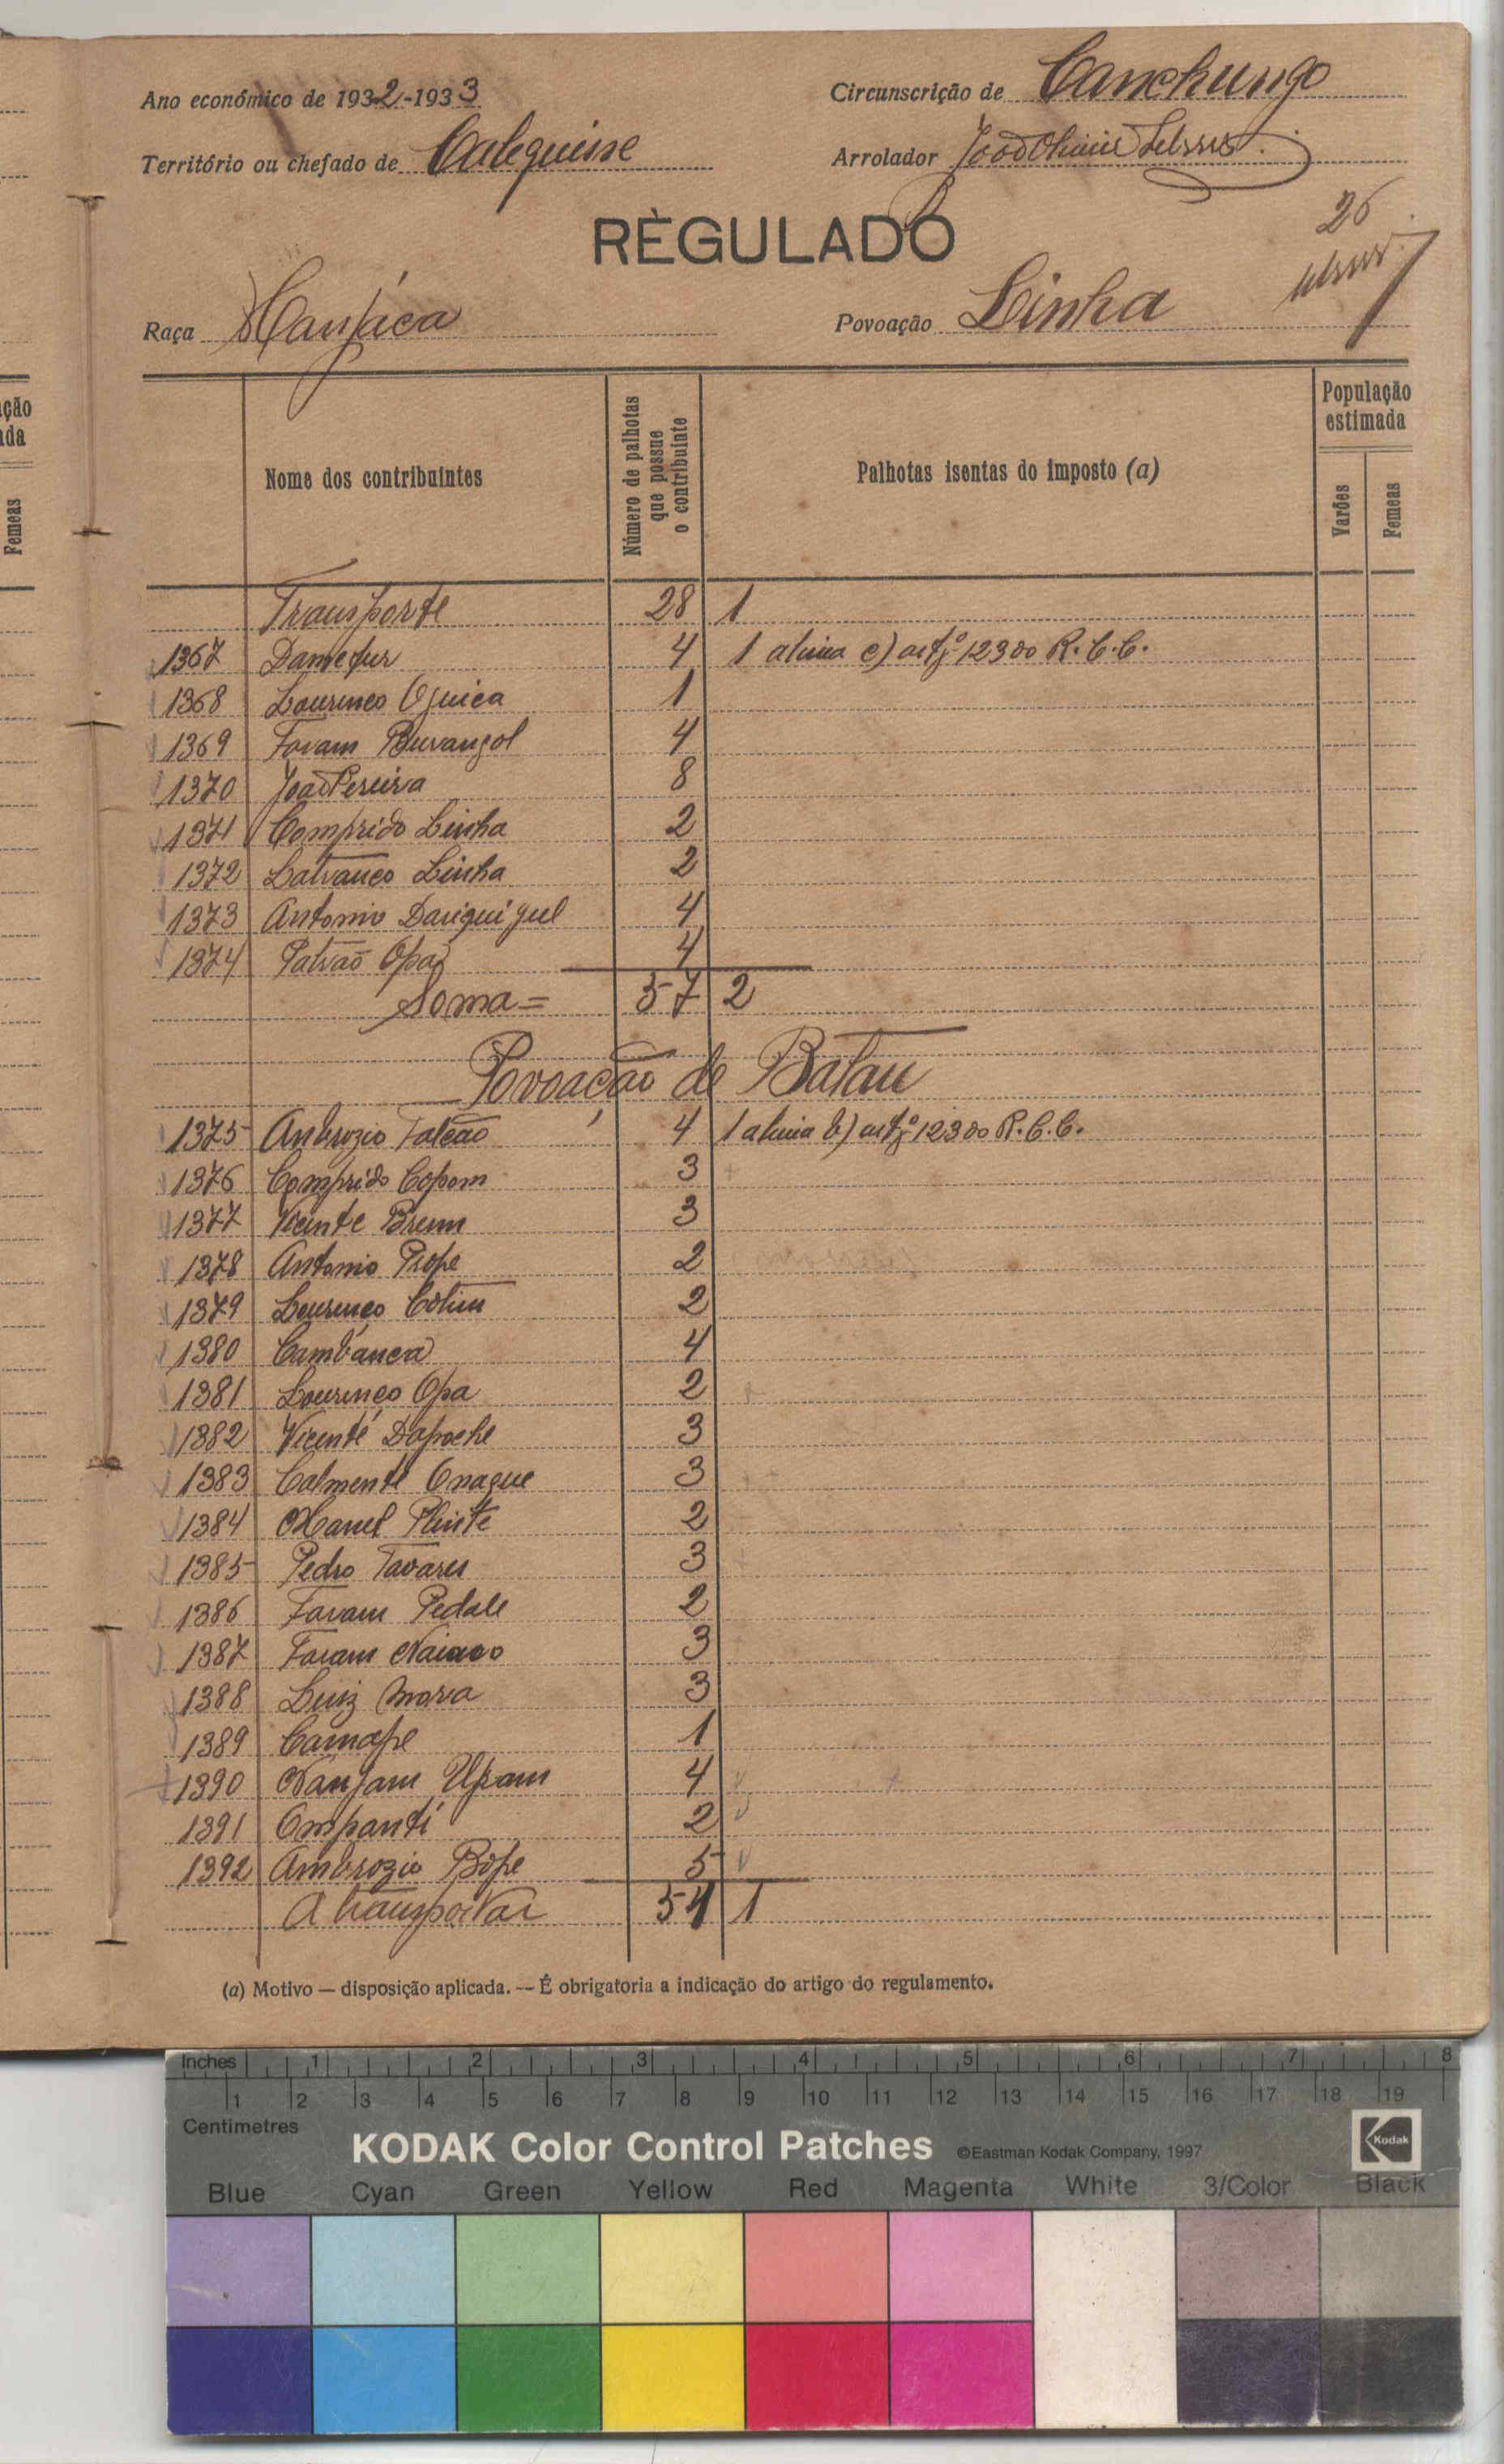 Ano económico de 1932-1933
Circunscrição de Canchungo
Território ou chefado de Calequisse
Arrolador João
26
RÈGULADO
Raça Manjáca
Povoação Linha
Nome dos contribuintes
Número de palhotas que possue o contribuinte
Palhotas isentas do imposto (a)
População estimada
Varões
Femeas
Transporte 28 1
1367 Damefur 4 1 alinia c) artgº 123 do R.C.C.
1368 Lourenço Oguica 1
1369 Favam Burangol 4
1370 João Pereira 8
1371 Comprido Linha 2
1372 Linha 2
1373 Antonio 4
1374 Opa 4
Soma= 57 2
Povoação de Batau
1375 Ambrozio Falcão 4 1 alinia b) artgº 123 do R.C.C.
1376 Comprido Copom 3
1377 Vicente Brum 3
1378 Antonio Piope 2
1379 Lourenço 2
1380 Cambánca 4
1381 Lourenço Opa 2
1382 Vicente Dapoche 3
1383 Calmente Onague 3
1384 Manel 2
1385 Pedro Tavares 3
1386 Favam Pedale 2
1387 Favam 3
1388 Luiz Mora 3
1389 Camape 1
1390 Nanjam Upam 4
1391 Ompanti 2
1392 Ambrozio Bope 5
A transportar 54 1
(a) Motivo — disposição aplicada. — É obrigatoria a indicação do artigo do regulamento.
ção
da
Femeas
Inches 1 2 3 4 5 6 7 8
1 2 3 4 5 6 7 8 9 10 11 12 13 14 15 16 17 18 19
Centimetres
KODAK Color Control Patches ©Eastman Kodak Company, 1997 Kodak
Blue Cyan Green Yellow Red Magenta White 3/Color Black